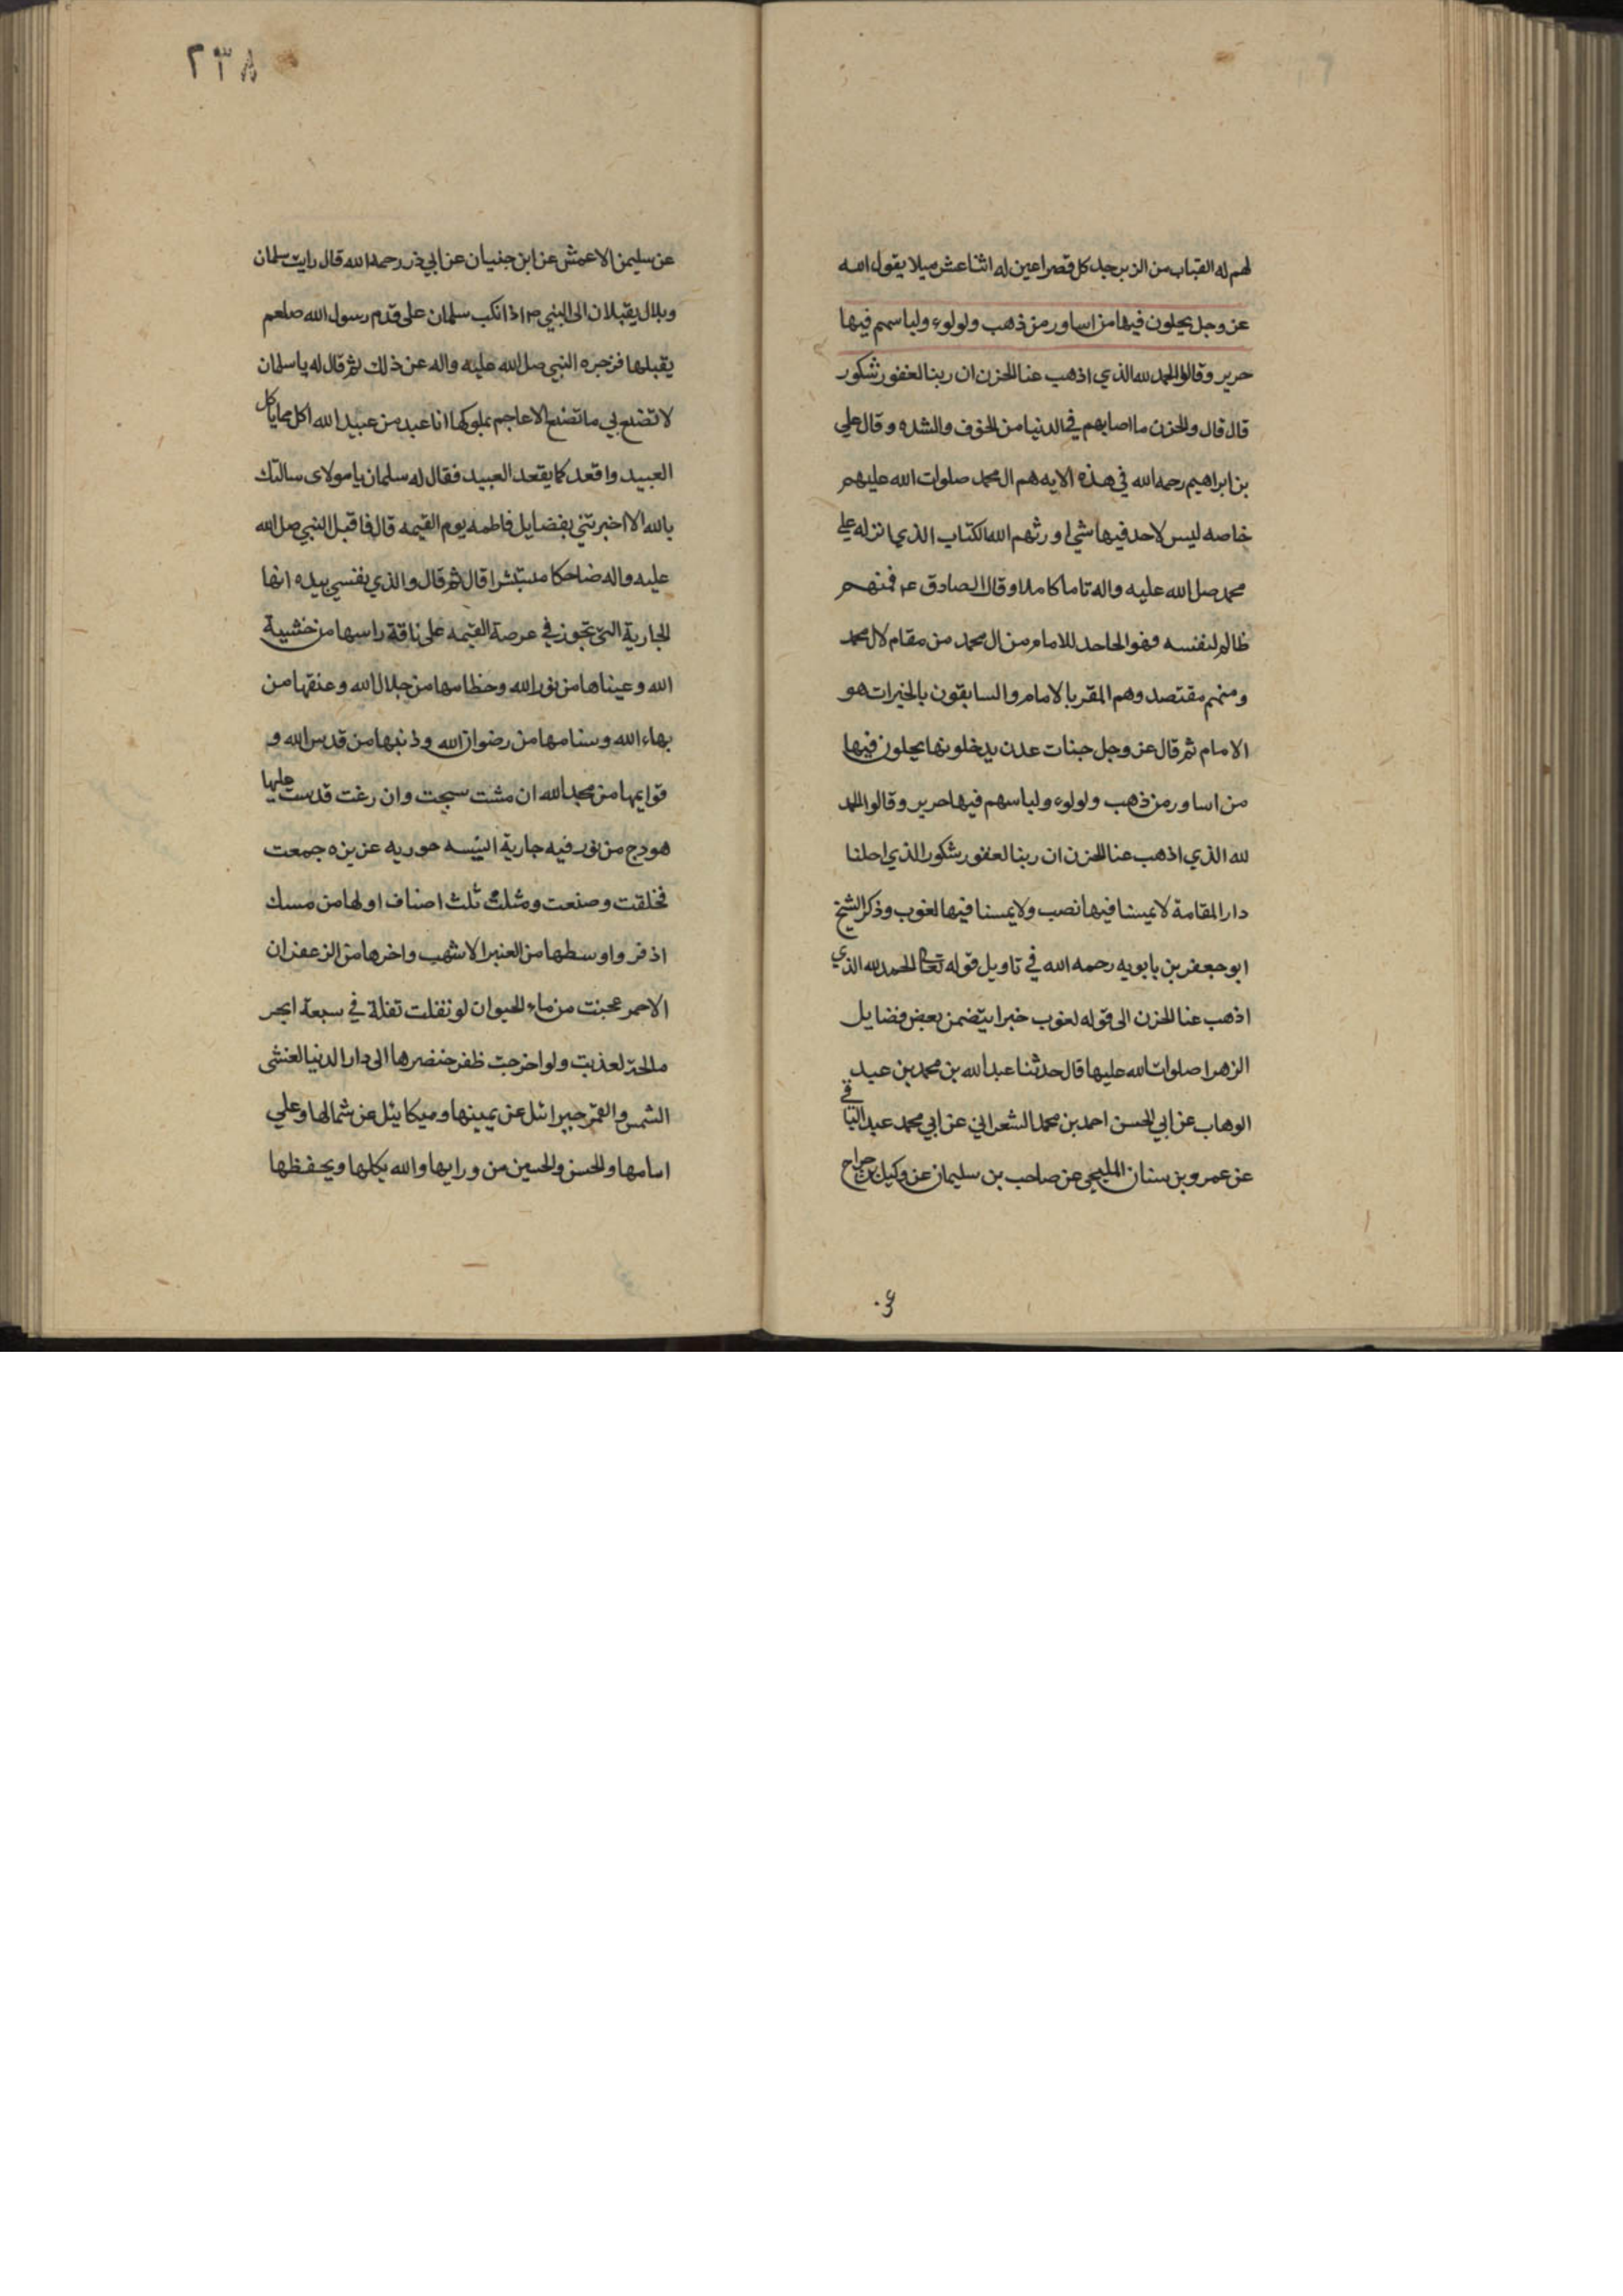 لهم له القباب من الزبرجد كل قصر اعين له اثنا عشر ميلا يقول الله
عز وجل يحلون فيها من اساور من ذهب ولولوء ولباسهم فيها
حرير وقالوا الحمد لله الذي اذهب عنا الحزن ان ربنا لغفور شكور
قال قال والحزن ما اصابهم في الدنيا من الخوف والشده وقال علي
بن ابراهيم رحمه الله في هذه الايه هم ال محمد صلوات الله عليهم
خاصه ليس لاحد فيها شئ اورثهم الله الكتاب الذي انزله علي
محمد صل الله عليه واله تاما كاملا وقال الصادق عم فمنهم
ظالم لنفسه وهو الجاحد للامام من ال محمد من مقام لال محمد
ومنهم مقتصد وهم المقر بالامام والسابقون بالخيرات هو
الامام ثم قال عز وجل جنات عدن يدخلونها يحلون فيها
من اساور من ذهب ولولوء ولباسهم فيها حرير وقالوا الحمد
لله الذي اذهب عنا الحزن ان ربنا لغفور شكور الذي احلنا
دار المقامة لا يمسنا فيها نصب ولا يمسنا فيها لغوب وذكر الشيخ
ابو جعفر بن بابويه رحمه الله في تاويل قوله تعالى الحمد لله الذي
اذهب عنا الحزن الى قوله لغوب خبرا يتضمن بعض فضايل
الزهرا صلوات الله عليها قال حدثنا عبد الله بن محمد بن عبد
الوهاب عن ابي الحسن احمد بن محمد الشعراني عن ابي محمد عبد الباقي
عن عمرو بن سنان المليجي عن صاحب بن سليمان عن وكيل بن جراح
و.
٢٣٨
عن سليمن الاعمش عن ابن جنيان عن ابي ذر رحمه الله قال رايت سلمان
وبلال يقبلان الى النبي ص اذ انكب سلمان على قدم رسول الله صلعم
يقبلها فزجره النبي صل الله عليه واله عن ذلك ثم قال له يا سلمان
لا تصنع بي ما تصنع الاعاجم بملوكها انا عبد من عبيد الله اكل مما ياكل
العبيد واقعد كما يقعد العبيد فقال له سلمان يا مولاى سالتك
بالله الا اخبرتني بفضايل فاطمه يوم القيمه قال فاقبل النبي صل الله
عليه واله ضاحكا مستبشرا قال ثم قال والذي نفسي بيده انها
الجارية التي تجوز في عرصة القيمه على ناقة راسها من خشية
الله وعيناها من نور الله وحظامها من جلال الله وعنقها من
بهاء الله وسنامها من رضوان الله وذنبها من قدس الله و
قوايمها من مجد الله ان مشت سبحت وان رغت قدست عليها
هودج من نور فيه جارية انيسه حوريه عزيزه جمعت
فخلقت وصنعت ومثلت ثلث اصناف اولها من مسك
اذفر واوسطها من العنبر الاشهب واخرها من الزعفران
الاحمر عجنت من ماء الحيوان لو تفلت تفلة في سبعة ابحر
مالحة لعذبت ولو اخرجت ظفر خنصرها الى دار الدنيا لغشى
الشمس والقمر جبرائل عن يمينها وميكائيل عن شمالها وعلي
امامها والحسن والحسين من ورايها والله يكلها ويحفظها